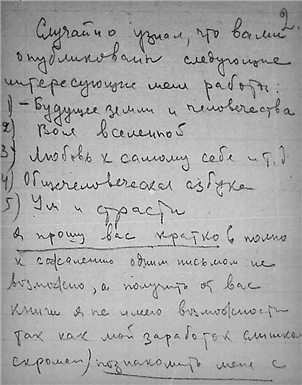 2.
Случайно узнал, что вами
опубликованы следующие
интересующие меня работы:
1) – Будущее земли и человечества
2) Воля вселенной
3) Любовь к самому себе и т.д.
4) Общечеловеческая азбука
5) Ум и страсти
Я прошу вас кратко (в полно
к сожалению одним письмом не
возможно, а получить от вас
книги я не имею возможности
так как мой заработок слишком
скромен) познакомить меня с